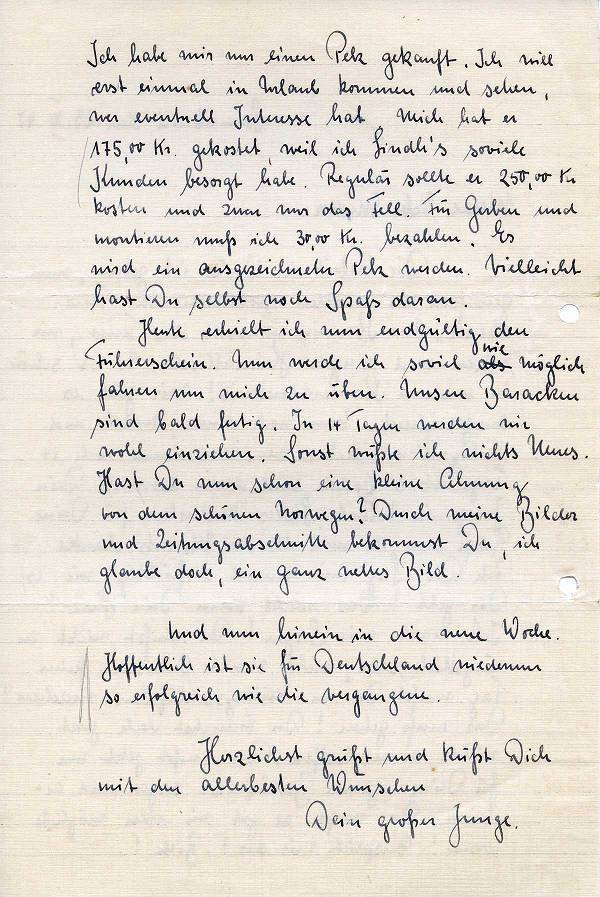 Ich habe mir nur einen Pelz gekauft. Ich will
erst einmal in Urlaub kommen und sehen,
wer eventuell Interesse hat. Mich hat er
175,00 Kr. gekostet, weil ich Lindli's soviele
Kunden besorgt habe. Regulär sollte er 250,00 Kr
kosten und zwar nur das Fell. Für Gerben und
montieren muß ich 30,00 Kr. bezahlen. Es
wird ein ausgezeichneter Pelz werden. Vielleicht
hast Du selbst noch Spaß daran.
Heute erhielt ich nun endgültig den
Führerschein. Nun werde ich soviel wie möglich
fahren um mich zu üben. Unsere Baracken
sind bald fertig. In 14 Tagen werden wir
wohl einziehen. Sonst wüßte ich nichts Neues.
Hast Du nun schon eine kleine Ahnung
von dem schönen Norwegen? Durch meine Bilder
und Zeitungsabschnitte bekommst Du, ich
glaube doch, ein ganz nettes Bild.
Und nun hinein in die neue Woche.
Hoffentlich ist sie für Deutschland wiederum
so erfolgreich wie die vergangene.
Herzlichst grüßt und küßt Dich
mit den allerbesten Wünschen
Dein großer Junge.